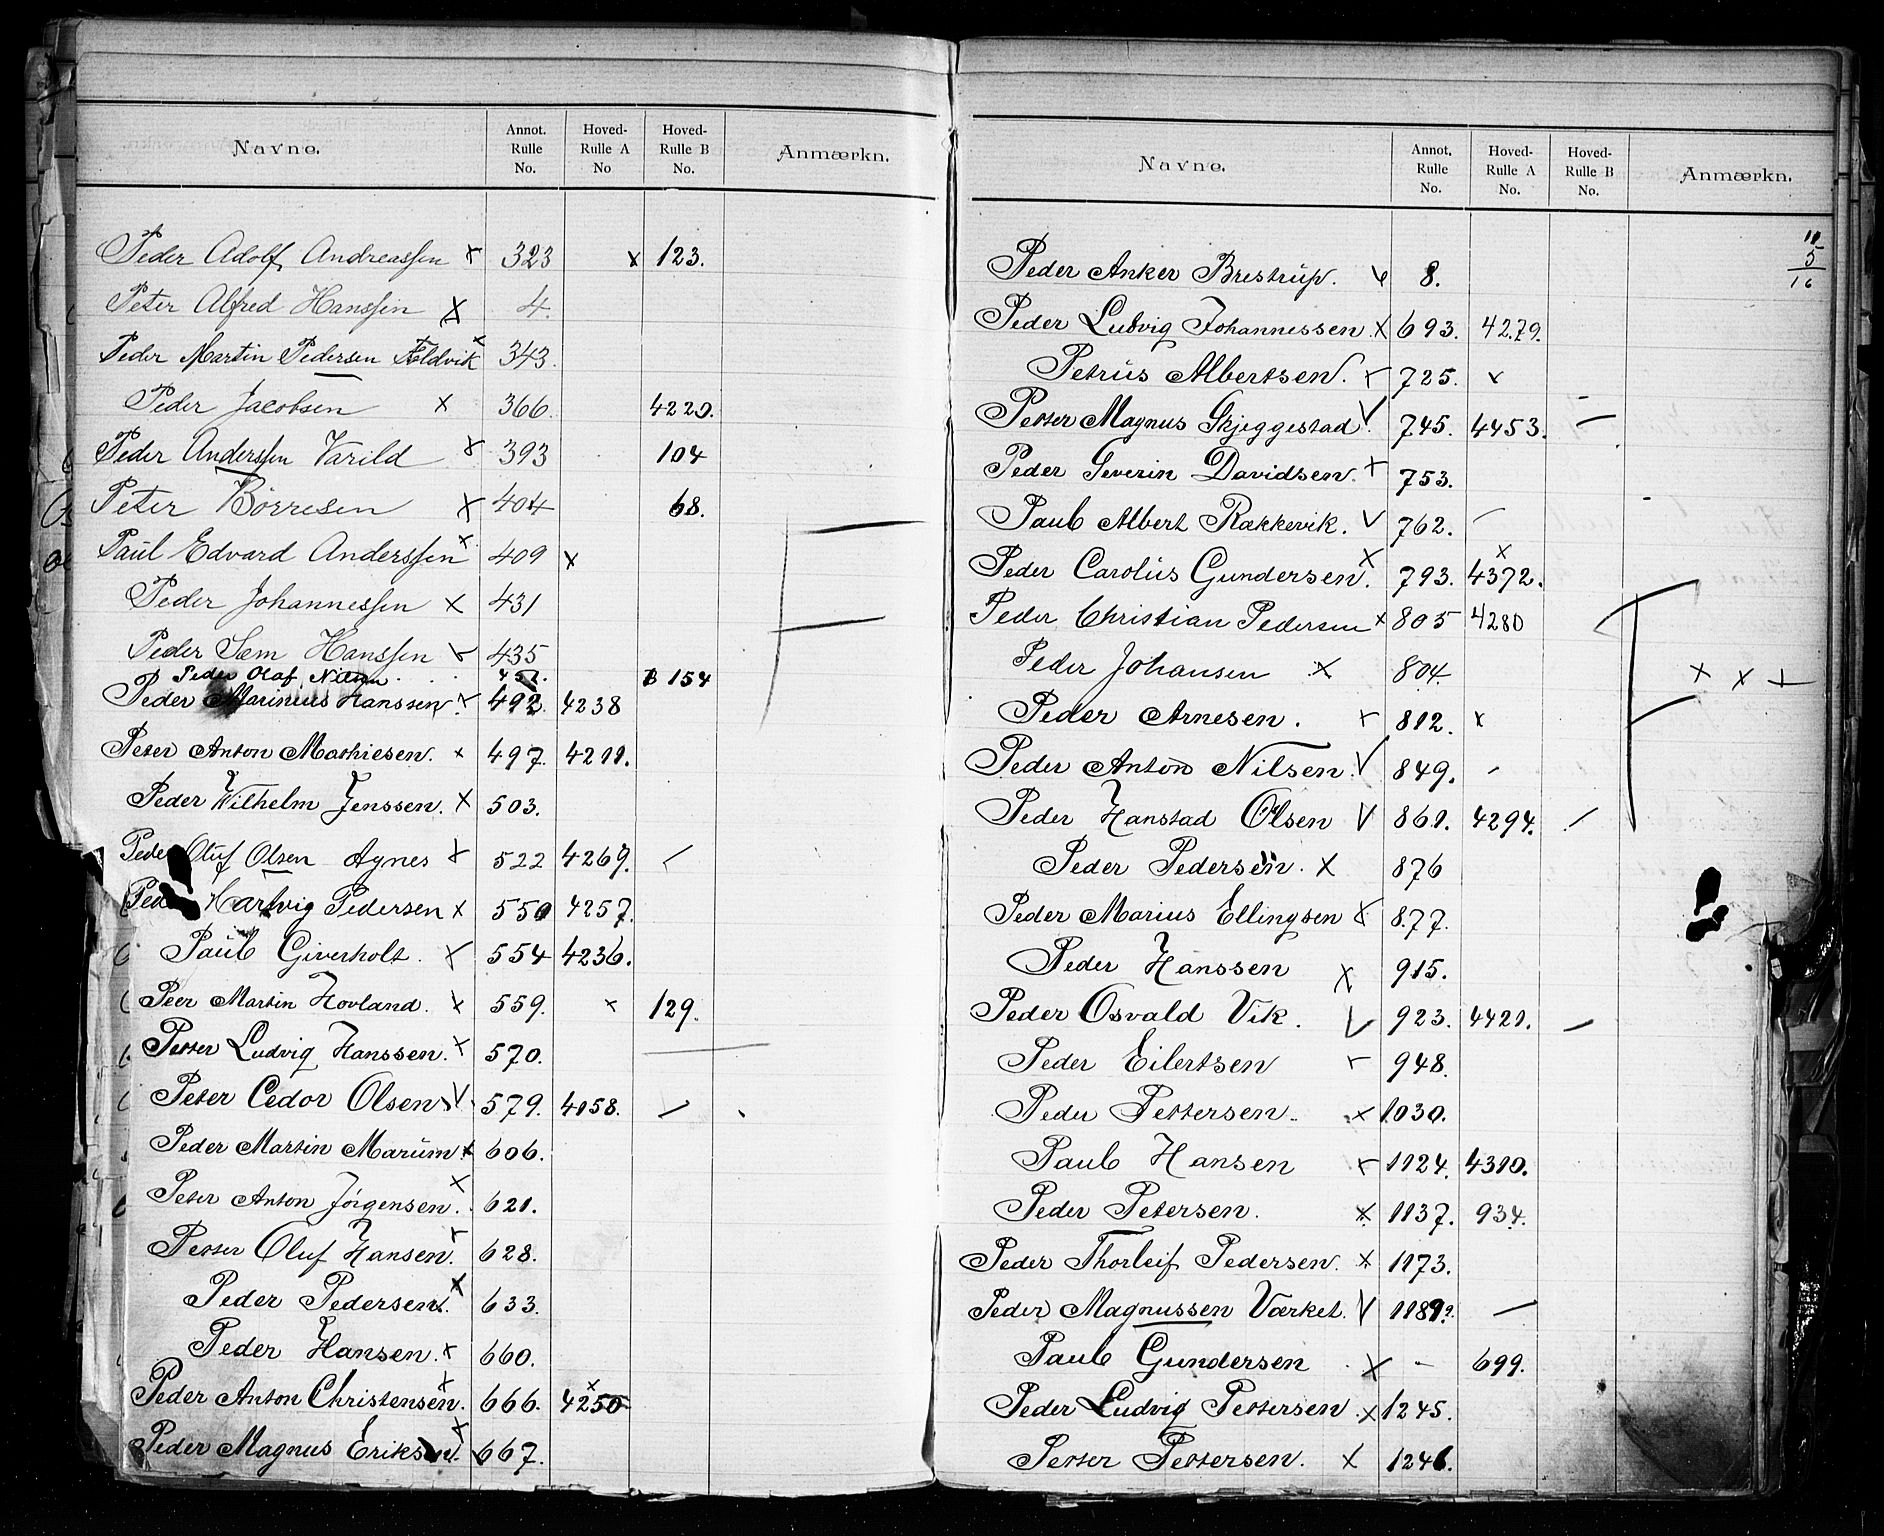 Navne. Annot. Rulle No. Hoved-Rulle A No Hoved-Rulle B No. Anmærkn.
Peder Adolf Andreassen x 323 x 123.
Peter Alfred Hanssen x 4.
Peder Martin Pedersen Foldvik x 343.
Peder Jacobsen x 366. 4220.
Peder Anderssen Varild x 393 104
Peter Börresen x 404 68.
Paul Edvard Anderssen x 409 x
Peder Johannessen x 431
Peder Sem Hanssen x 435
Peder Olaf Nilsen B 154
Peder Marinius Hanssen x 492. 4238
Peter Anton Mathiesen. x 497. 4211.
Peder Wilhelm Jenssen. x 503.
Peder Oluf Olsen Agnes x 522 4269.
Peder Hartvig Pedersen x 550 4257.
Paul Giverholt. x 554 4236.
Peer Martin Hovland. x 559. x 129.
Petter Ludvig Hanssen. x 570.
Peter Cedor Olsen. V. 579. 4058. –
Peder Martin Marum x 606.
Peter Anton Jörgensen. x 621.
Petter Oluf Hansen. x 628.
Peder Pedersen. x 633.
Peder Hansen. x 660.
Peder Anton Christensen. x 666. x 4250
Peder Magnus Eriksen. x 667.
Navne. Annot. Rulle No. Hoved-Rulle A No. Hoved-Rulle B No. Anmærkn.
11
5
16
Peder Anker Brestrup. x 8.
Peder Ludvig Johannessen. x 693. 4279.
Petrus Albertsen. x 725. x
Petter Magnus Skjeggestad V. 745. 4453. –
Peder Severin Davidsen. x 753.
Paul Albert Rakkevik. V 762. –
Peder Carolus Gundersen. x 793. x 4372.
Peder Christian Pedersen x 805 4280
Peder Johansen x 804. x x x
Peder Arnesen. x 812. x
Peder Anton Nilsen. V 849. –
Peder Hanstad Olsen V 861. 4294. –
Peder Pedersen. x 876
Peder Marius Ellingsen x 877.
Peder Hanssen x 915.
Peder Osvald Vik. V 923. 4421. –
Peder Eilertsen x 948.
Peder Pettersen. x 1030.
Paul Hansen x 1124. 4310.
Peder Petersen. x 1137. 934.
Peder Thorleif Pedersen. x 1173.
Peder Magnussen Værket. V 1189. –
Paul Gundersen x – 699.
Peder Ludvig Pettersen. x 1245.
Petter Pettersen. x 1246.